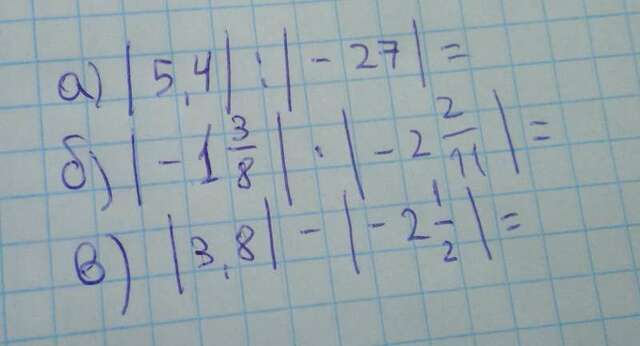 а) |5,4| : |-27| =
б) |-1 3/8| · |-2 2/11| =
в) |3,8| - |-2 1/2| =